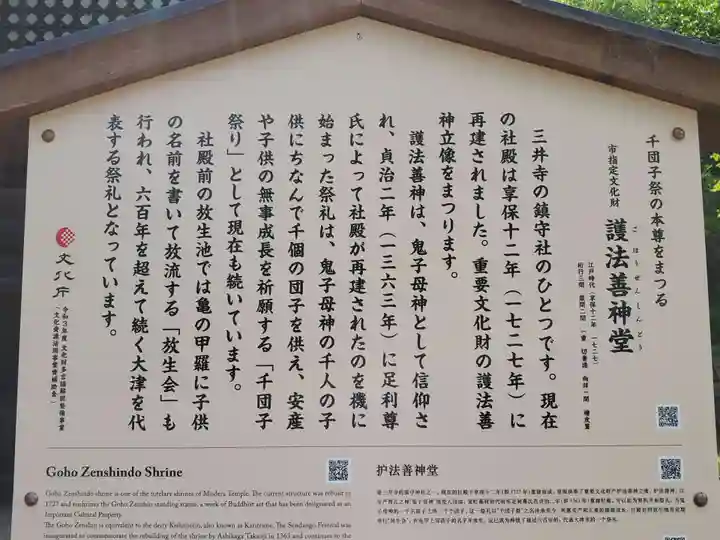 千団子祭の本尊をまつる
市指定文化財
護法善神堂
ごほうぜんしんどう
江戸時代(享保十二年 一七二七)
三井寺の鎮守社のひとつです。現在
の社殿は享保十二年(一七二七年)に
再建されました。重要文化財の護法善
神立像をまつります。
護法善神は、鬼子母神として信仰さ
れ、貞治二年(一三六三年)に足利尊
氏によって社殿が再建されたのを機に
始まった祭礼は、鬼子母神の千人の子
供にちなんで千個の団子を供え、安産
や子供の無事成長を祈願する「千団子
祭り」として現在も続いています。
社殿前の放生池では亀の甲羅に子供
の名前を書いて放流する「放生会」も
行われ、六百年を超えて続く大津を代
表する祭礼となっています。
文化庁
令和3年度 文化財多言語解説整備事業
Goho Zenshindo Shrine
Goho Zenshindo shrine is one of the tutelary shrines of Miidera Temple. The current structure was rebuilt in
1727 and enshrines the Goho Zenshin standing statue, a work of Buddhist art that has been designated as an
Important Cultural Property.
The Goho Zenshin is equivalent to the deity Kishimojin, also known as
inaugurated to commemorate the rebuilding of the shrine by Ashikaga Takauji in 1363 and continues to the
护法善神堂